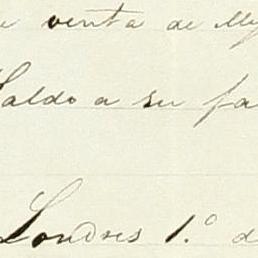 venta de
Saldo a su
Londres 1.º